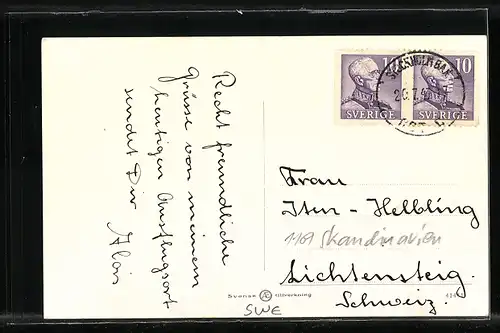 Recht freundliche
Grüsse von meinem
heutigen Ausflugsort
sendet Dir Alois
10
SVERIGE
10
SVERIGE
STOCKHOLM BAN
Frau
Iten - Helbling
1107 Skandinavien
Lichtensteig.
Schweiz.
Svensk Tillverkning
SWE